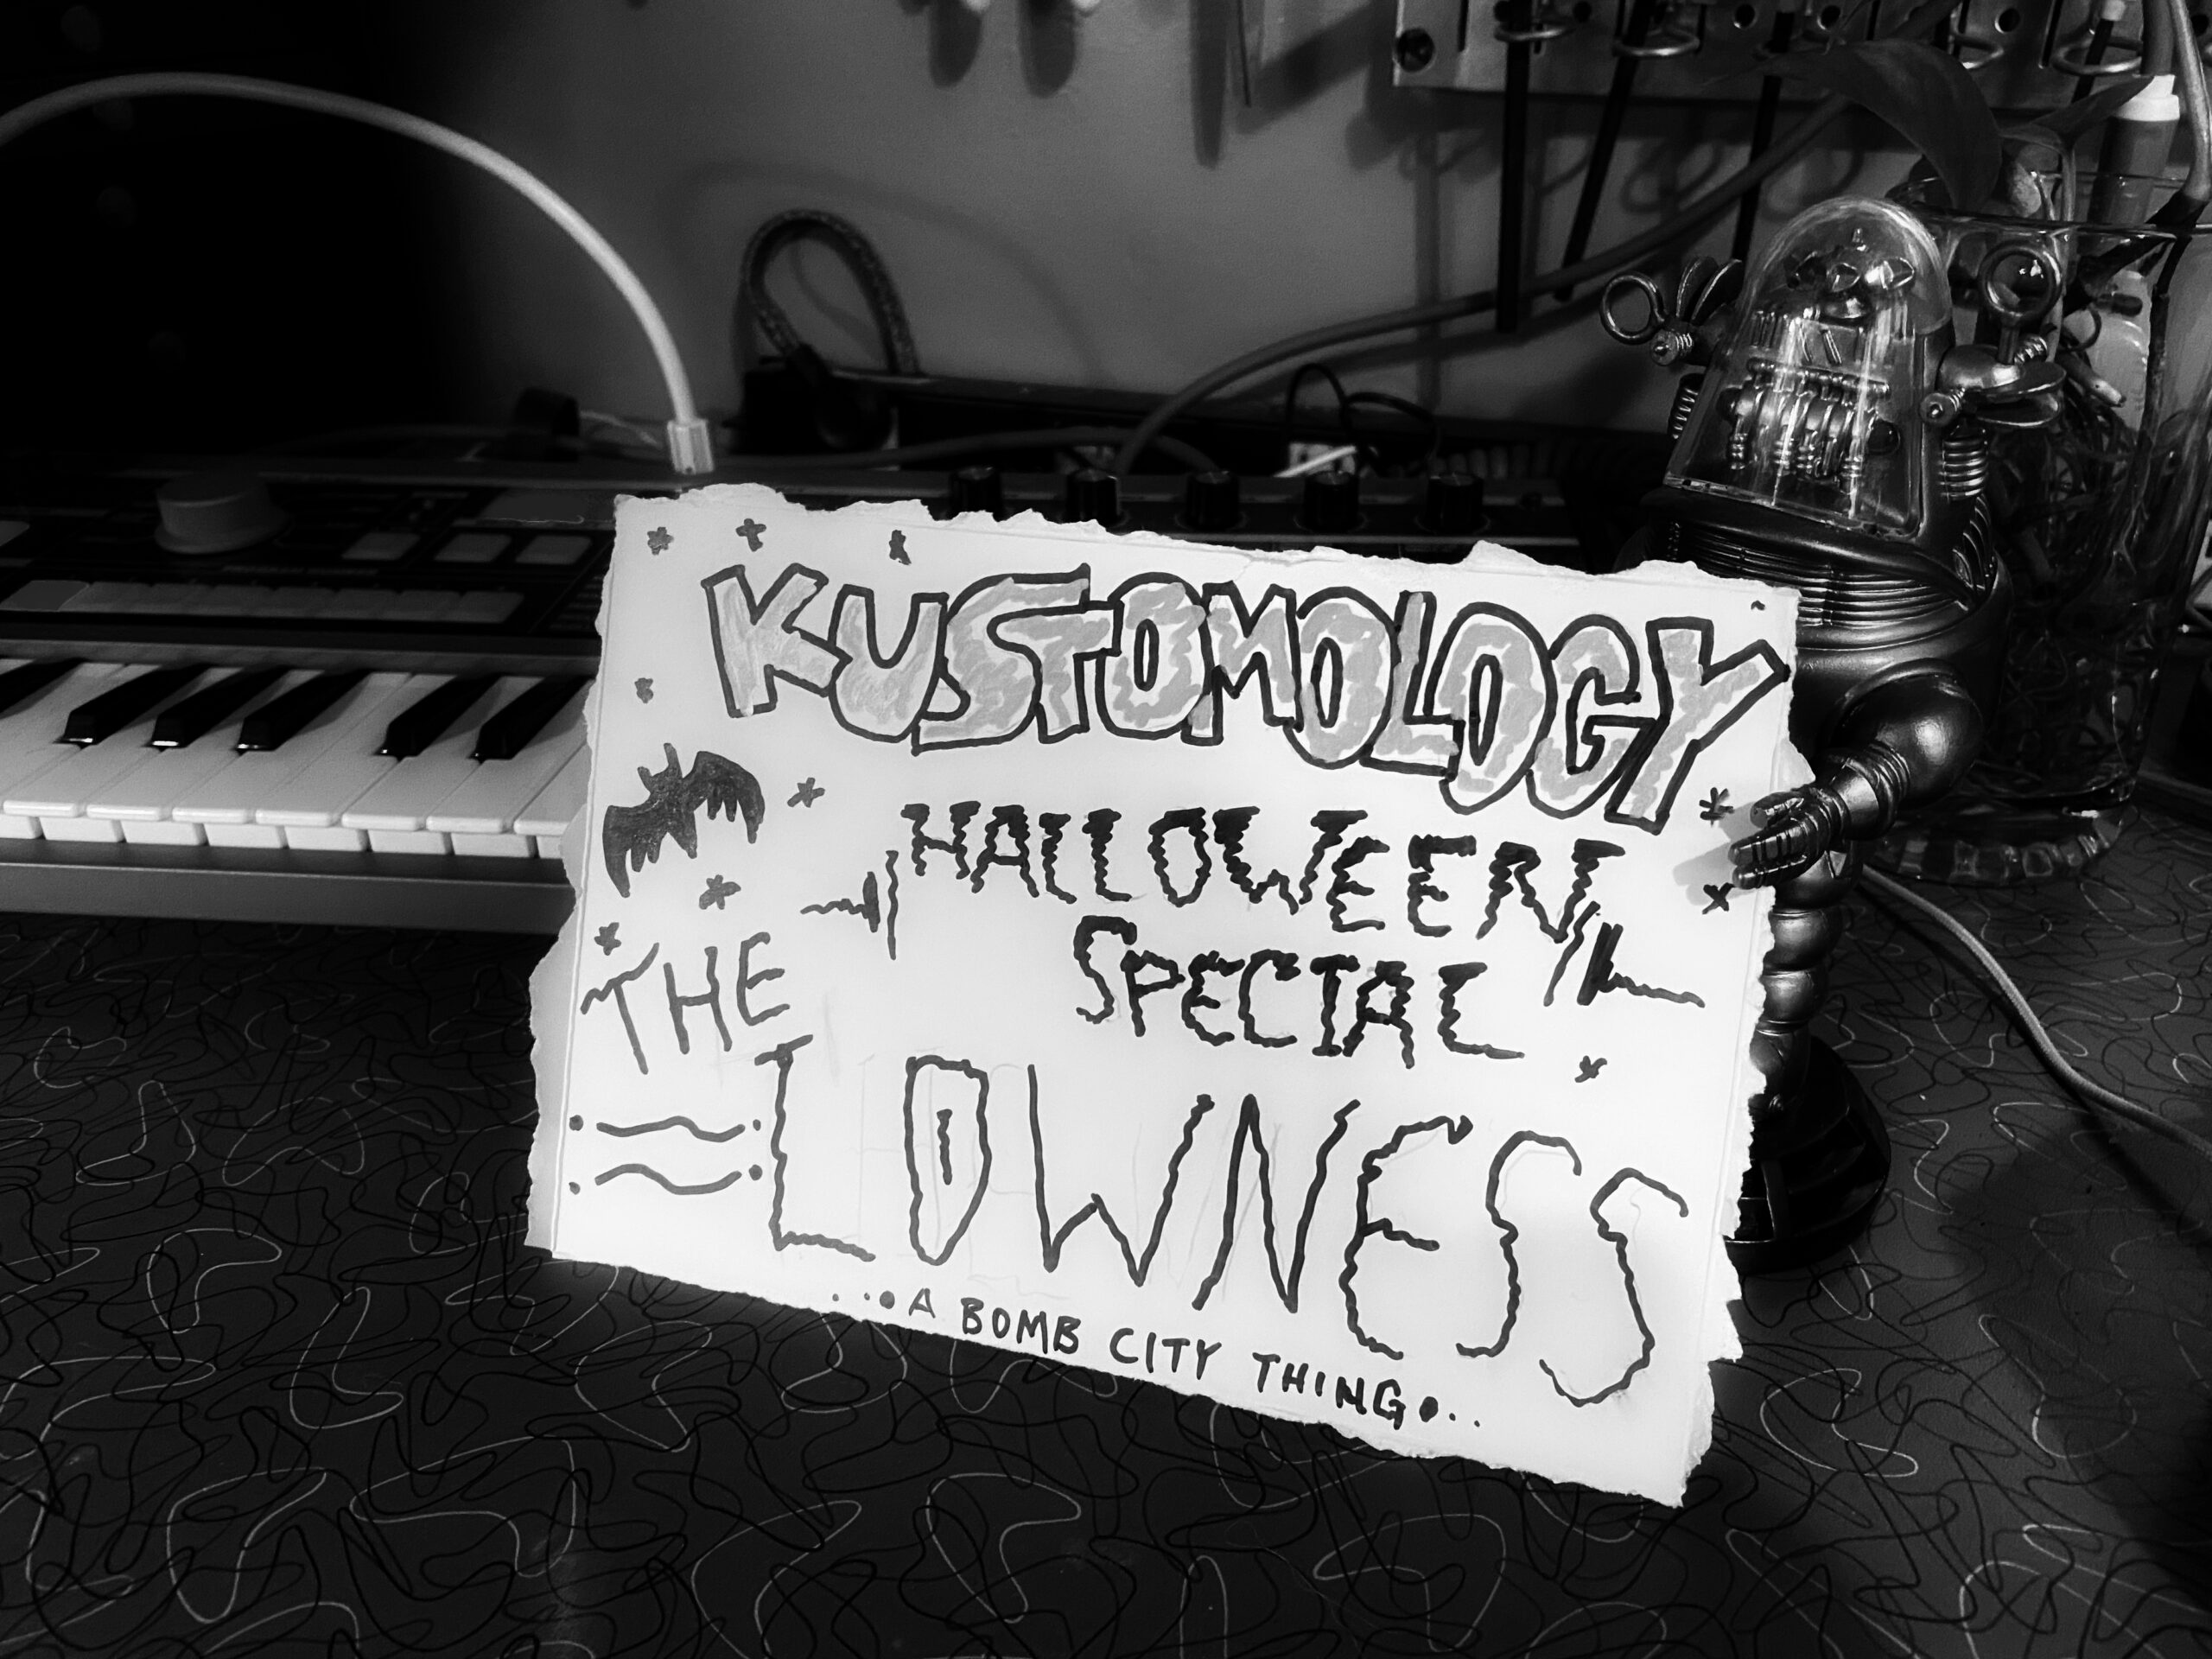 KUSTOMOLOGY
HALLOWEEN
SPECIAL
THE
LOWNESS
...A BOMB CITY THING...